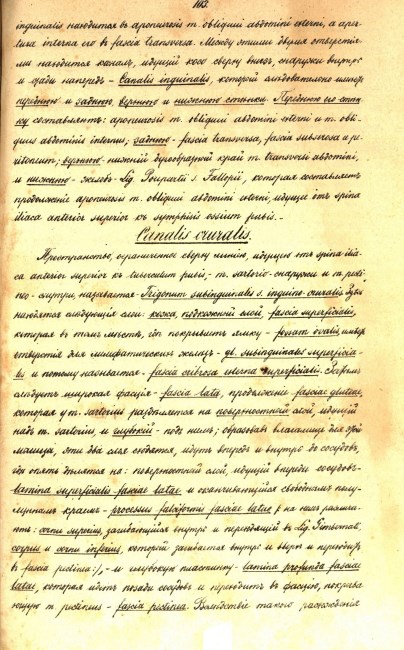 163.
inguinalis находится въ aponurosis m. obliqui abdomini externi, а aper-
tura interna его въ fascia transversa. Между этими двумя отверстія-
ми находится каналъ, идущій косо сверху внизъ, снаружи внутрь
и сзади напередъ – Canalis inguinalis, который слѣдовательно имѣетъ
переднюю и заднюю, верхнюю и нижнюю стѣнки. Переднюю его стѣн-
ку составляютъ: aponeurosis m. obliqui abdomini externi и m. obli-
quus abdominis internus; заднюю – fascia transversa, fascia subserosa и pe-
ritoneum; верхнюю – нижній край m. transversi abdomini,
и нижнюю – желобъ Lig. Pouparti s. Fallopii, которая составляетъ
продолженіе aponurosis m. obliqui abdomini externi, идущее отъ spina
iliaca anterior superior къ symphisis ossium pubis. –
Canalis cruralis.
Пространство, ограниченное сверху линіею, идущею отъ spina ilia-
ca anterior superior къ tuberculum pubis, – m. sartorio – снаружи и m. pecti-
neo – снутри, называется – Trigonum subinguinale s. inguino-cruralis. Здѣсь
находятся слѣдующіе слои: кожа, подкожный слой, fascia superficialis,
которая въ томъ мѣстѣ, гдѣ покрываетъ ямку – fossam ovalis, имѣетъ
отверстія для лимфатическихъ железъ – gl. subinguinales superficia-
les и потому называется – fascia cribrosa externa superficialis. Затѣмъ
слѣдуетъ широкая фасція – fascia lata, продолженіе fasciae gluteae,
которая у m. sartorius раздѣляется на поверхностный слой, идущій
надъ m. sartorius, и глубокій – подъ нимъ; образовавъ влагалище для этой
мышцы, эти два слоя сходятся, идутъ впередъ и внутрь до сосудовъ,
гдѣ опять дѣлятся на: поверхностный слой, идущій впереди сосудовъ –
lamina superficialis fasciae latae и оканчивающійся свободнымъ полу-
луннымъ краемъ – processus falciformis fasciae latae (на немъ различа-
ютъ: cornu superius, загибающійся внутрь и переходящій въ Lig. Gimbernati,
corpus и cornu inferius, который загибается внутрь и вверхъ и переходитъ
въ fascia pectinea:/, – и глубокую пластинку – lamina profunda fasciae
latae, которая идетъ позади сосудовъ и переходитъ въ фасцію, покрыва-
ющую m. pectineus – fascia pectinea. Вслѣдствіе такого расхожденія